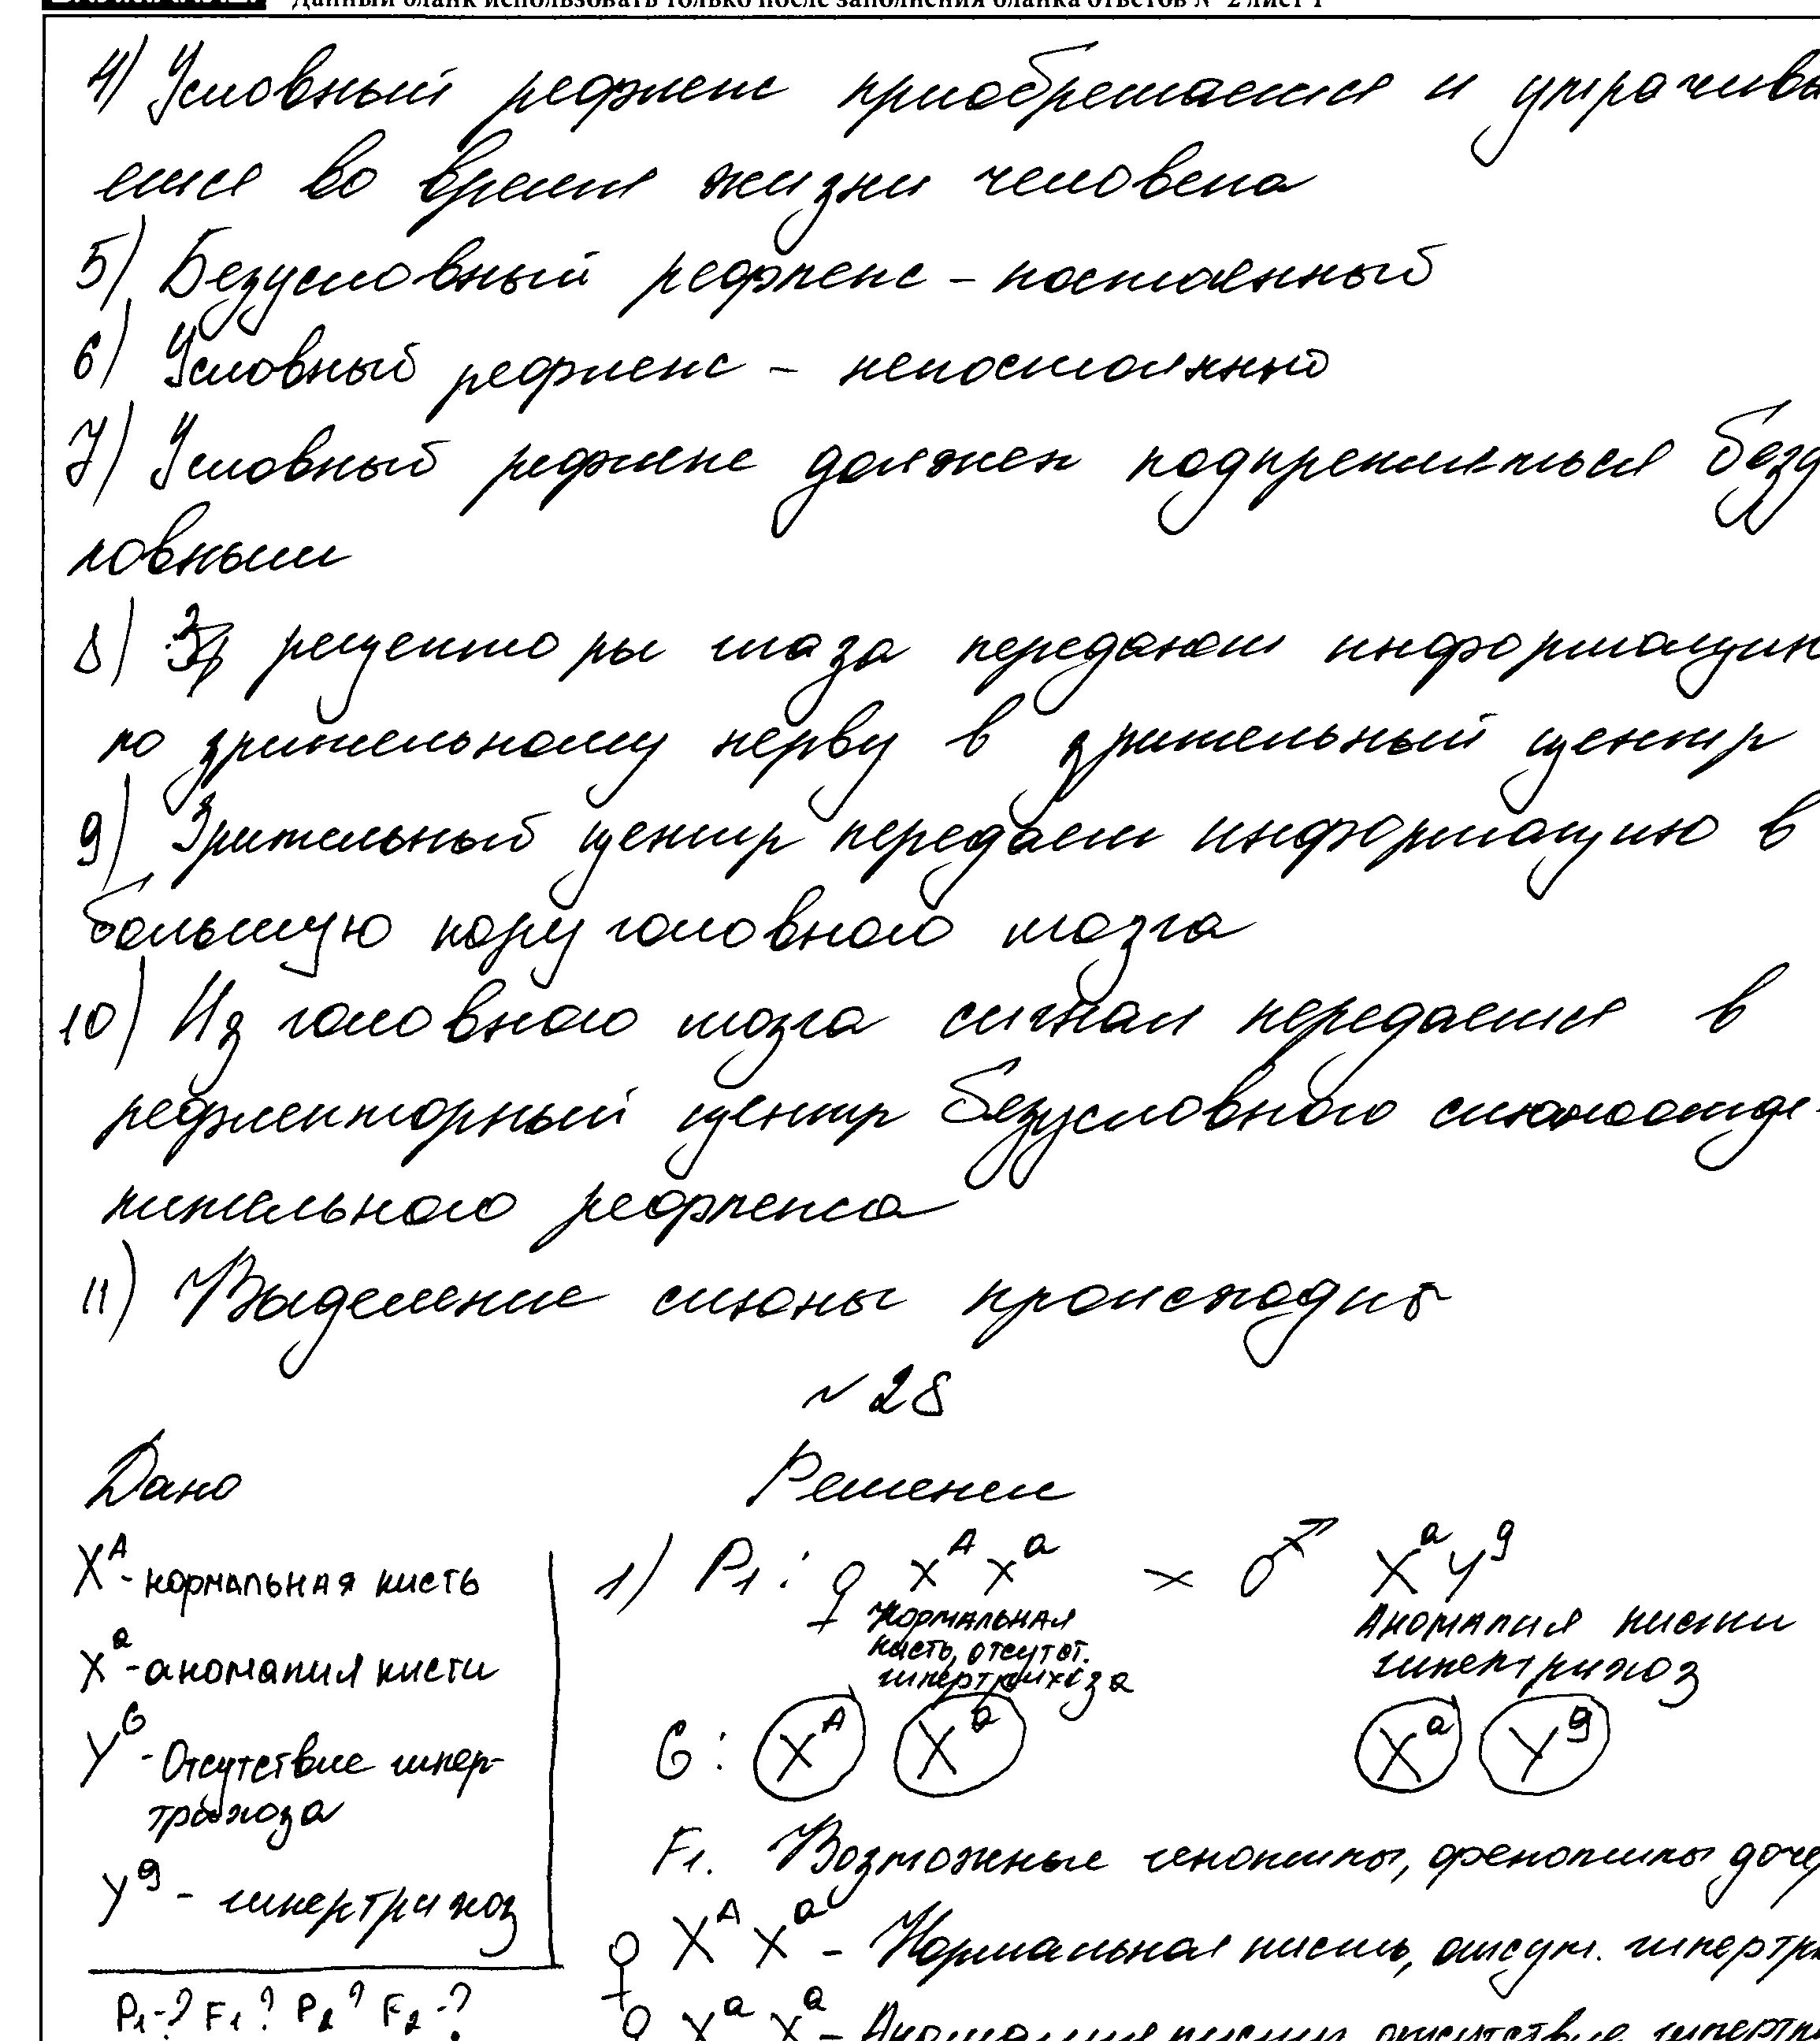 Данный бланк использовать только после заполнения бланка ответов № 2 лист 1
4) Условный рефлекс приобретается и утрачива
ется во время жизни человека
5) Безусловный рефлекс – постоянный
6) Условный рефлекс – непостоянный
7) Условный рефлекс должен подкрепляться безу
ловным
8) рецепторы глаза передают информацию
по зрительному нерву в зрительный центр
9) Зрительный центр передаёт информацию в
большую кору головного мозга
10) Из головного мозга сигнал передается в
рефлекторный центр безусловного слюноотде-
лительного рефлекса
11) Выделение слюны происходит
~ 28
Дано
Решение
X^A - нормальная кисть
X^a - аномалия кисти
Y^G - Отсутствие гипер-
трихоза
Y^g - гипертрихоз
P1-? F1? P2? F2-?
1) P1: ♀ X^A X^a × ♂ X^a Y^g
Нормальная
кисть, отсутст.
гипертрихоза
Аномалия кисти
гипертрихоз
G: X^A X^a X^a Y^g
F1. Возможные генотипы, фенотипы дочер
♀ X^A X^a – Нормальная кисть, отсут. гипертри
♀ X^a X^a – Аномалия кисти, отсутствие гипертр